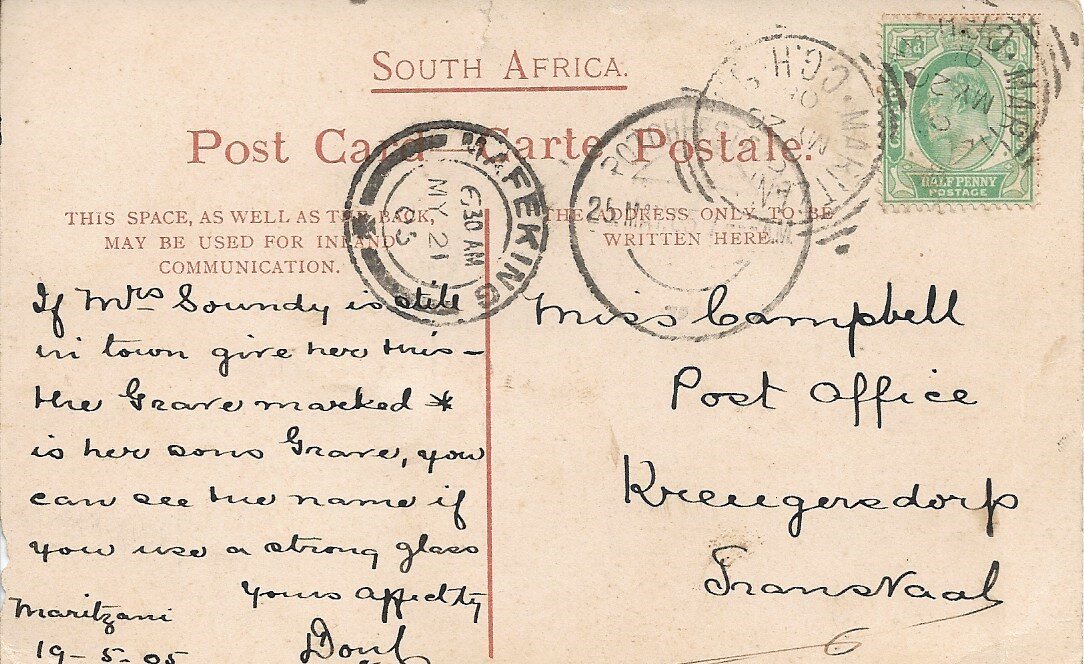 SOUTH AFRICA.
Post Card Carte Postale.
THIS SPACE, AS WELL AS THE BACK,
MAY BE USED FOR INLAND
COMMUNICATION.
THE ADDRESS ONLY TO BE
WRITTEN HERE.
MAFEKING
6 30 AM
MY 21
05
25 MA
HALF PENNY
POSTAGE
If Mrs Soundy is still
in town give her this -
the Grave marked *
is her sons Grave, you
can see the name if
you use a strong glass
Yours Affectly
Maritzani
19-5-05
Miss Campbell
Post Office
Kreugersdorp
Transvaal
6